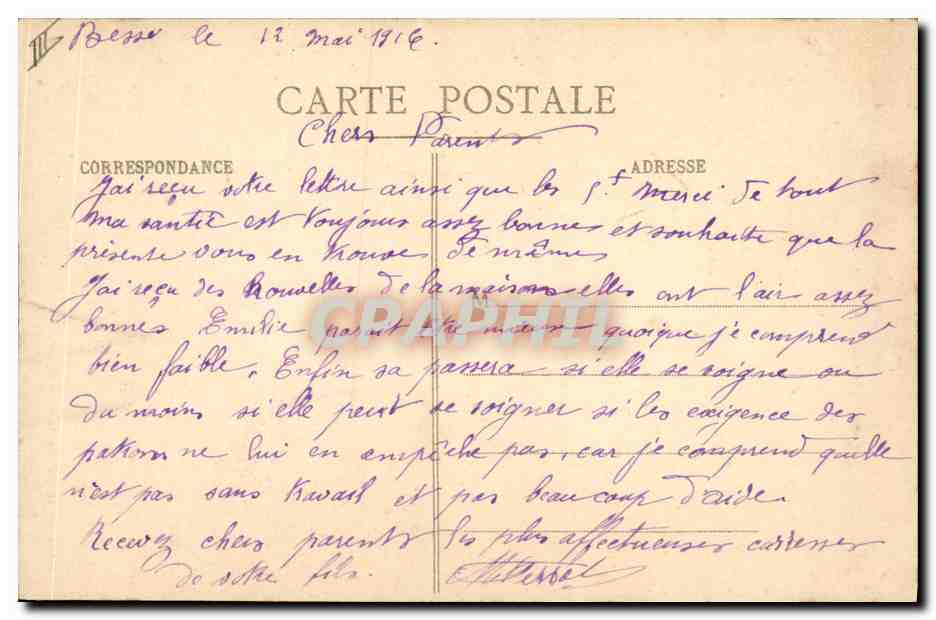 III
Besse le 12 mai 1916.
CARTE POSTALE
Chers Parents
CORRESPONDANCE
ADRESSE
J'ai reçu votre lettre ainsi que les 5f merci de tout
Ma santée est toujours assez bonnes et souhaite que la
présente vous en trouves de mêmes
J'ai reçu des nouvelles de la maisons elles ont l'air assez
M
CPAPHIL
bonnes Emilie parait être mieux quoique je comprend
bien faible. Enfin sa passera si elle se soigne ou
du moins si elle peut se soigner si les exigence des
patrons ne lui en empêche pas, car je comprend quelle
n'est pas sans travail et pas beaucoup d'aide.
Recevez chers parents les plus affectueuses carresses
de votre fils.